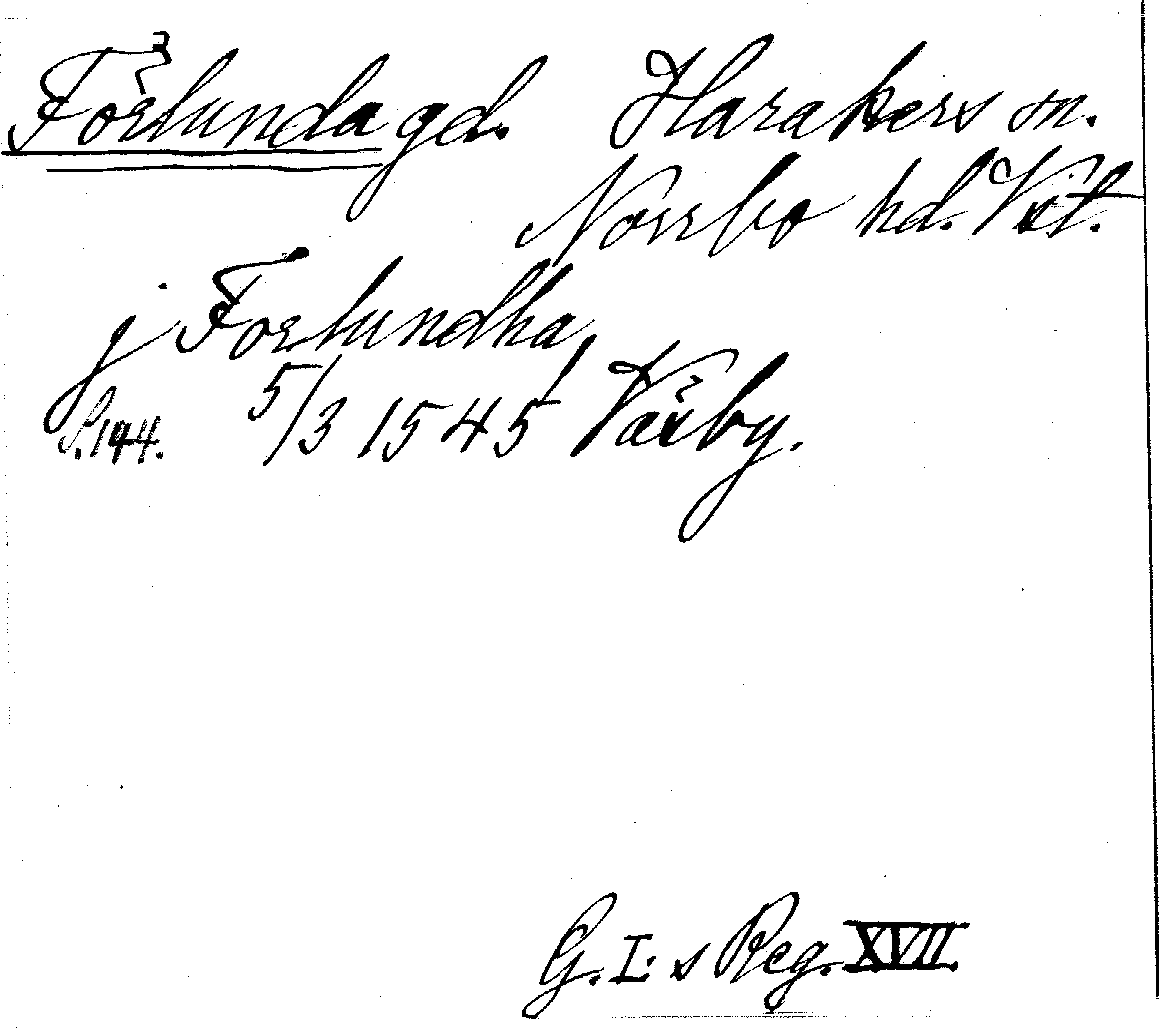 Förlunda gd. Harakers sn.
Norrbo hd. Vstl.
j Forlundha
S. 144. 5/3 1545 Väsby.
G. I:s Reg. XVII.